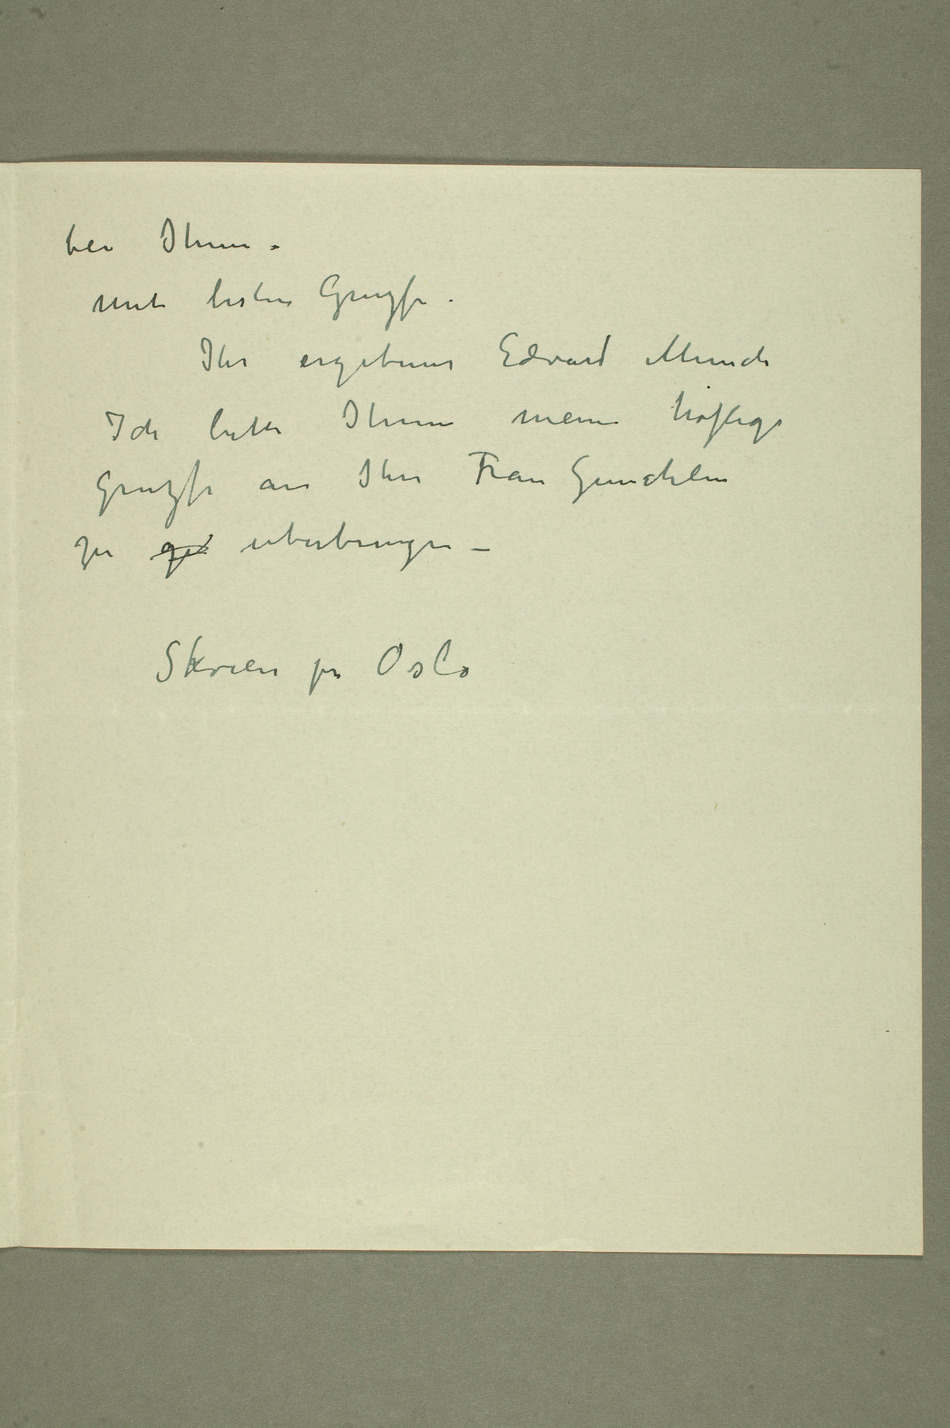 bei Ihnen.
Mit besten Gruzse.
Ihr ergebener Edvard Munch
Ich bitte Ihnen meine höflige
Gruzse an Ihre Frau Gemahlin
zu uberbringen –
Skøien pr Oslo